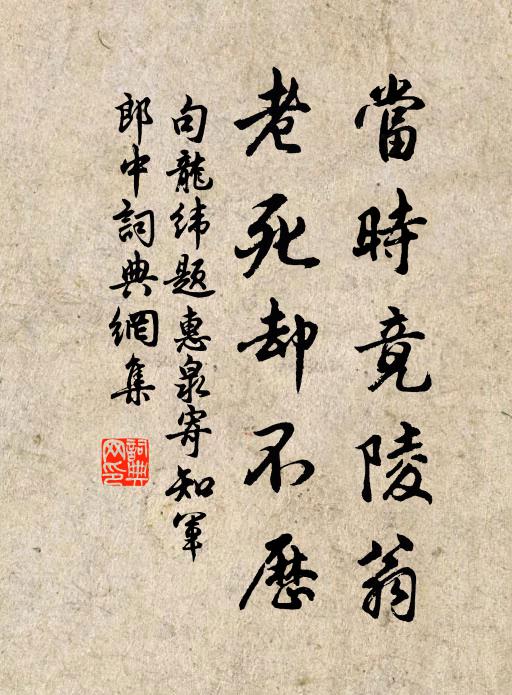 當時竟陵翁
老死却不歷
句龍緯題惠泉寄知軍
郎中詞典網集
詞典网印